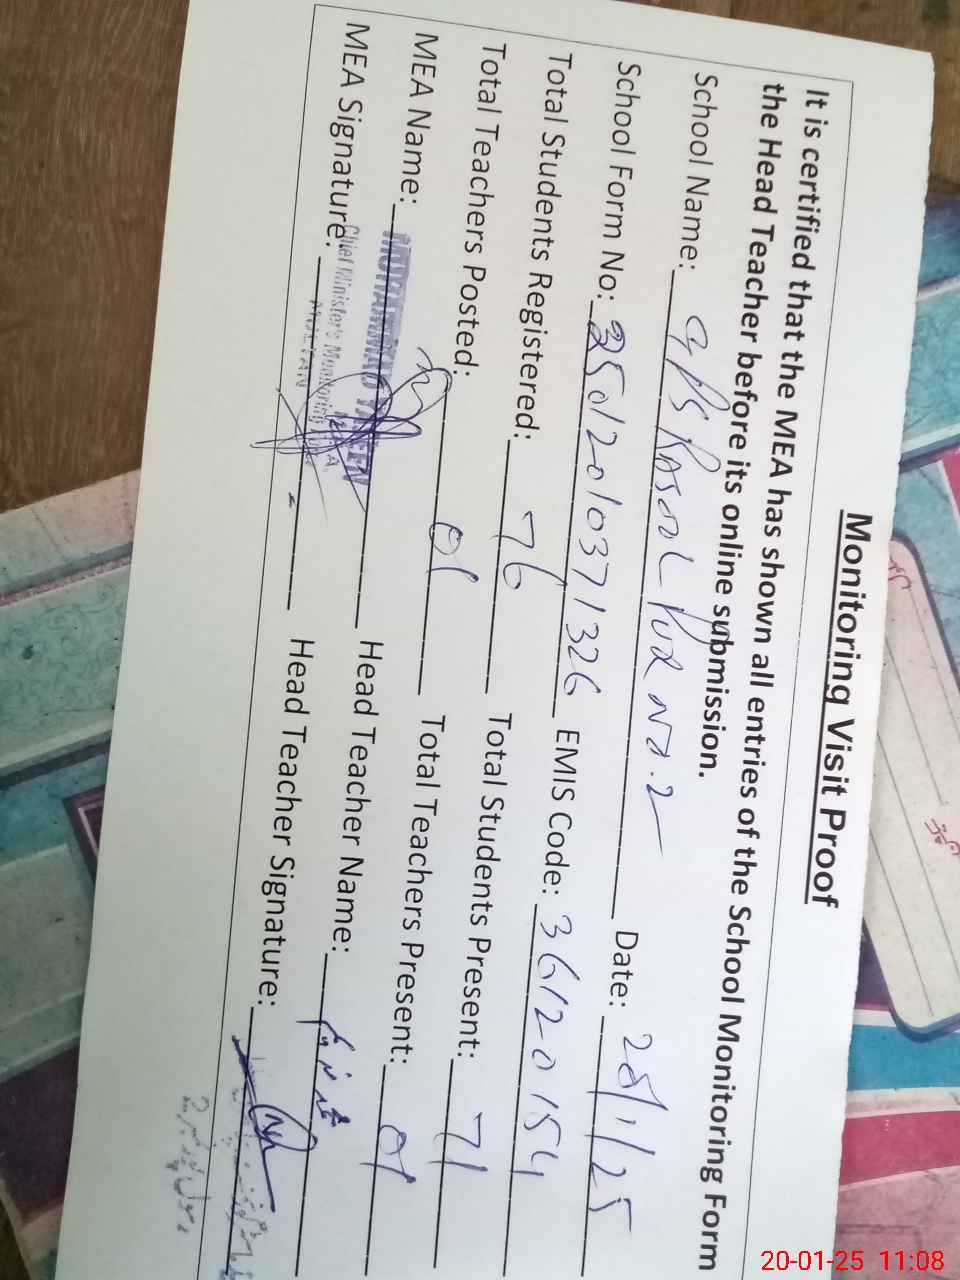 Monitoring Visit Proof
It is certified that the MEA has shown all entries of the School Monitoring Form
the Head Teacher before its online submission.
School Name: GPS Rasool Pur No.2 Date: 28/1/25
School Form No: 35012010371326 EMIS Code: 36120154
Total Students Registered: 76 Total Students Present: 71
Total Teachers Posted: 01 Total Teachers Present: 01
MEA Name: MUHAMMAD Head Teacher Name:
MEA Signature: Head Teacher Signature:
Chief Minister's Monitoring
20-01-25 11:08